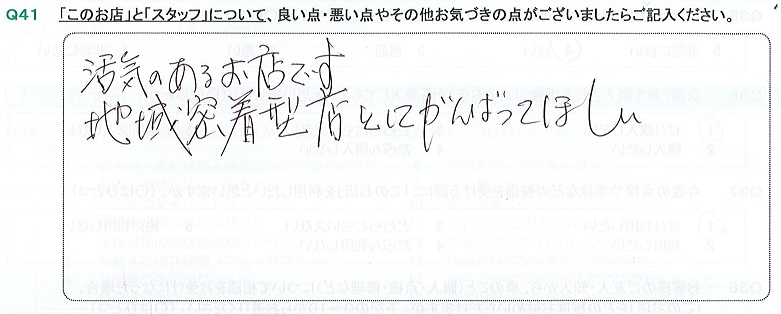 Q41 「このお店」と「スタッフ」について、良い点・悪い点やその他お気づきの点がございましたらご記入ください。
活気のあるお店です
地域密着型店としてがんばってほしい